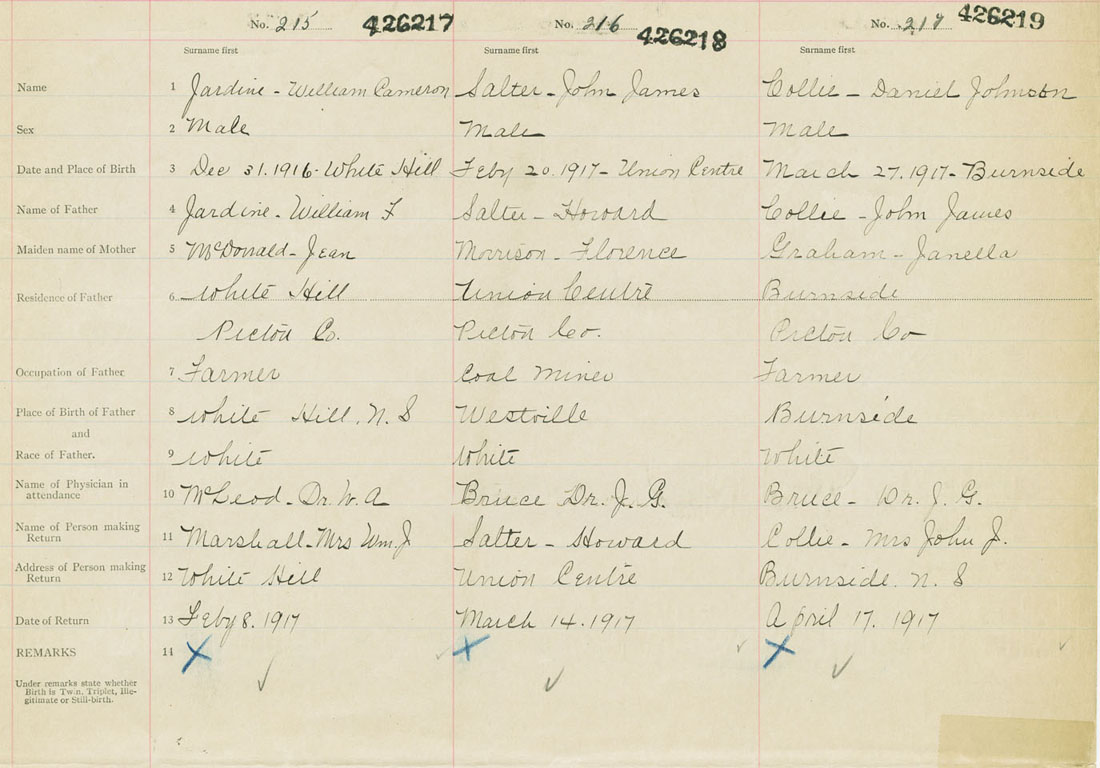 No. 215 426217 No. 216 426218 No. 217 426219
Surname first Surname first Surname first
Name 1 Jardine - William Cameron Salter - John James Collie - Daniel Johnson
Sex 2 Male Male Male
Date and Place of Birth 3 Dec 31. 1916 - White Hill Feby 20. 1917 - Union Centre March 27. 1917 - Burnside
Name of Father 4 Jardine - William F Salter - Howard Collie - John James
Maiden name of Mother 5 McDonald - Jean Morrison - Florence Graham - Janella
Residence of Father 6 White Hill Union Centre Burnside
Pictou Co. Pictou Co. Pictou Co
Occupation of Father 7 Farmer Coal Miner Farmer
Place of Birth of Father 8 White Hill. N. S Westville Burnside
and
Race of Father. 9 White White White
Name of Physician in
attendance 10 McLeod - Dr. W. A Bruce Dr. J. G. Bruce - Dr. J. G.
Name of Person making
Return 11 Marshall - Mrs Wm. J Salter - Howard Collie - Mrs John J.
Address of Person making
Return 12 White Hill Union Centre Burnside. N. S
Date of Return 13 Feby 8. 1917 March 14. 1917 April 17. 1917
REMARKS 14
Under remarks state whether
Birth is Twin, Triplet, Ille-
gitimate or Still-birth.